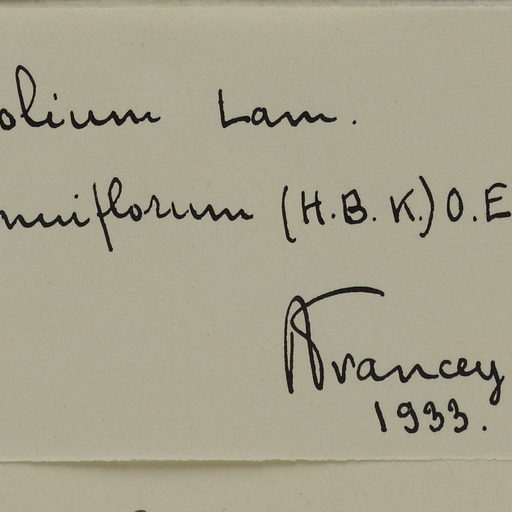 olium Lam.
nuiflorum (H.B.K.) O.E
Francey
1933.